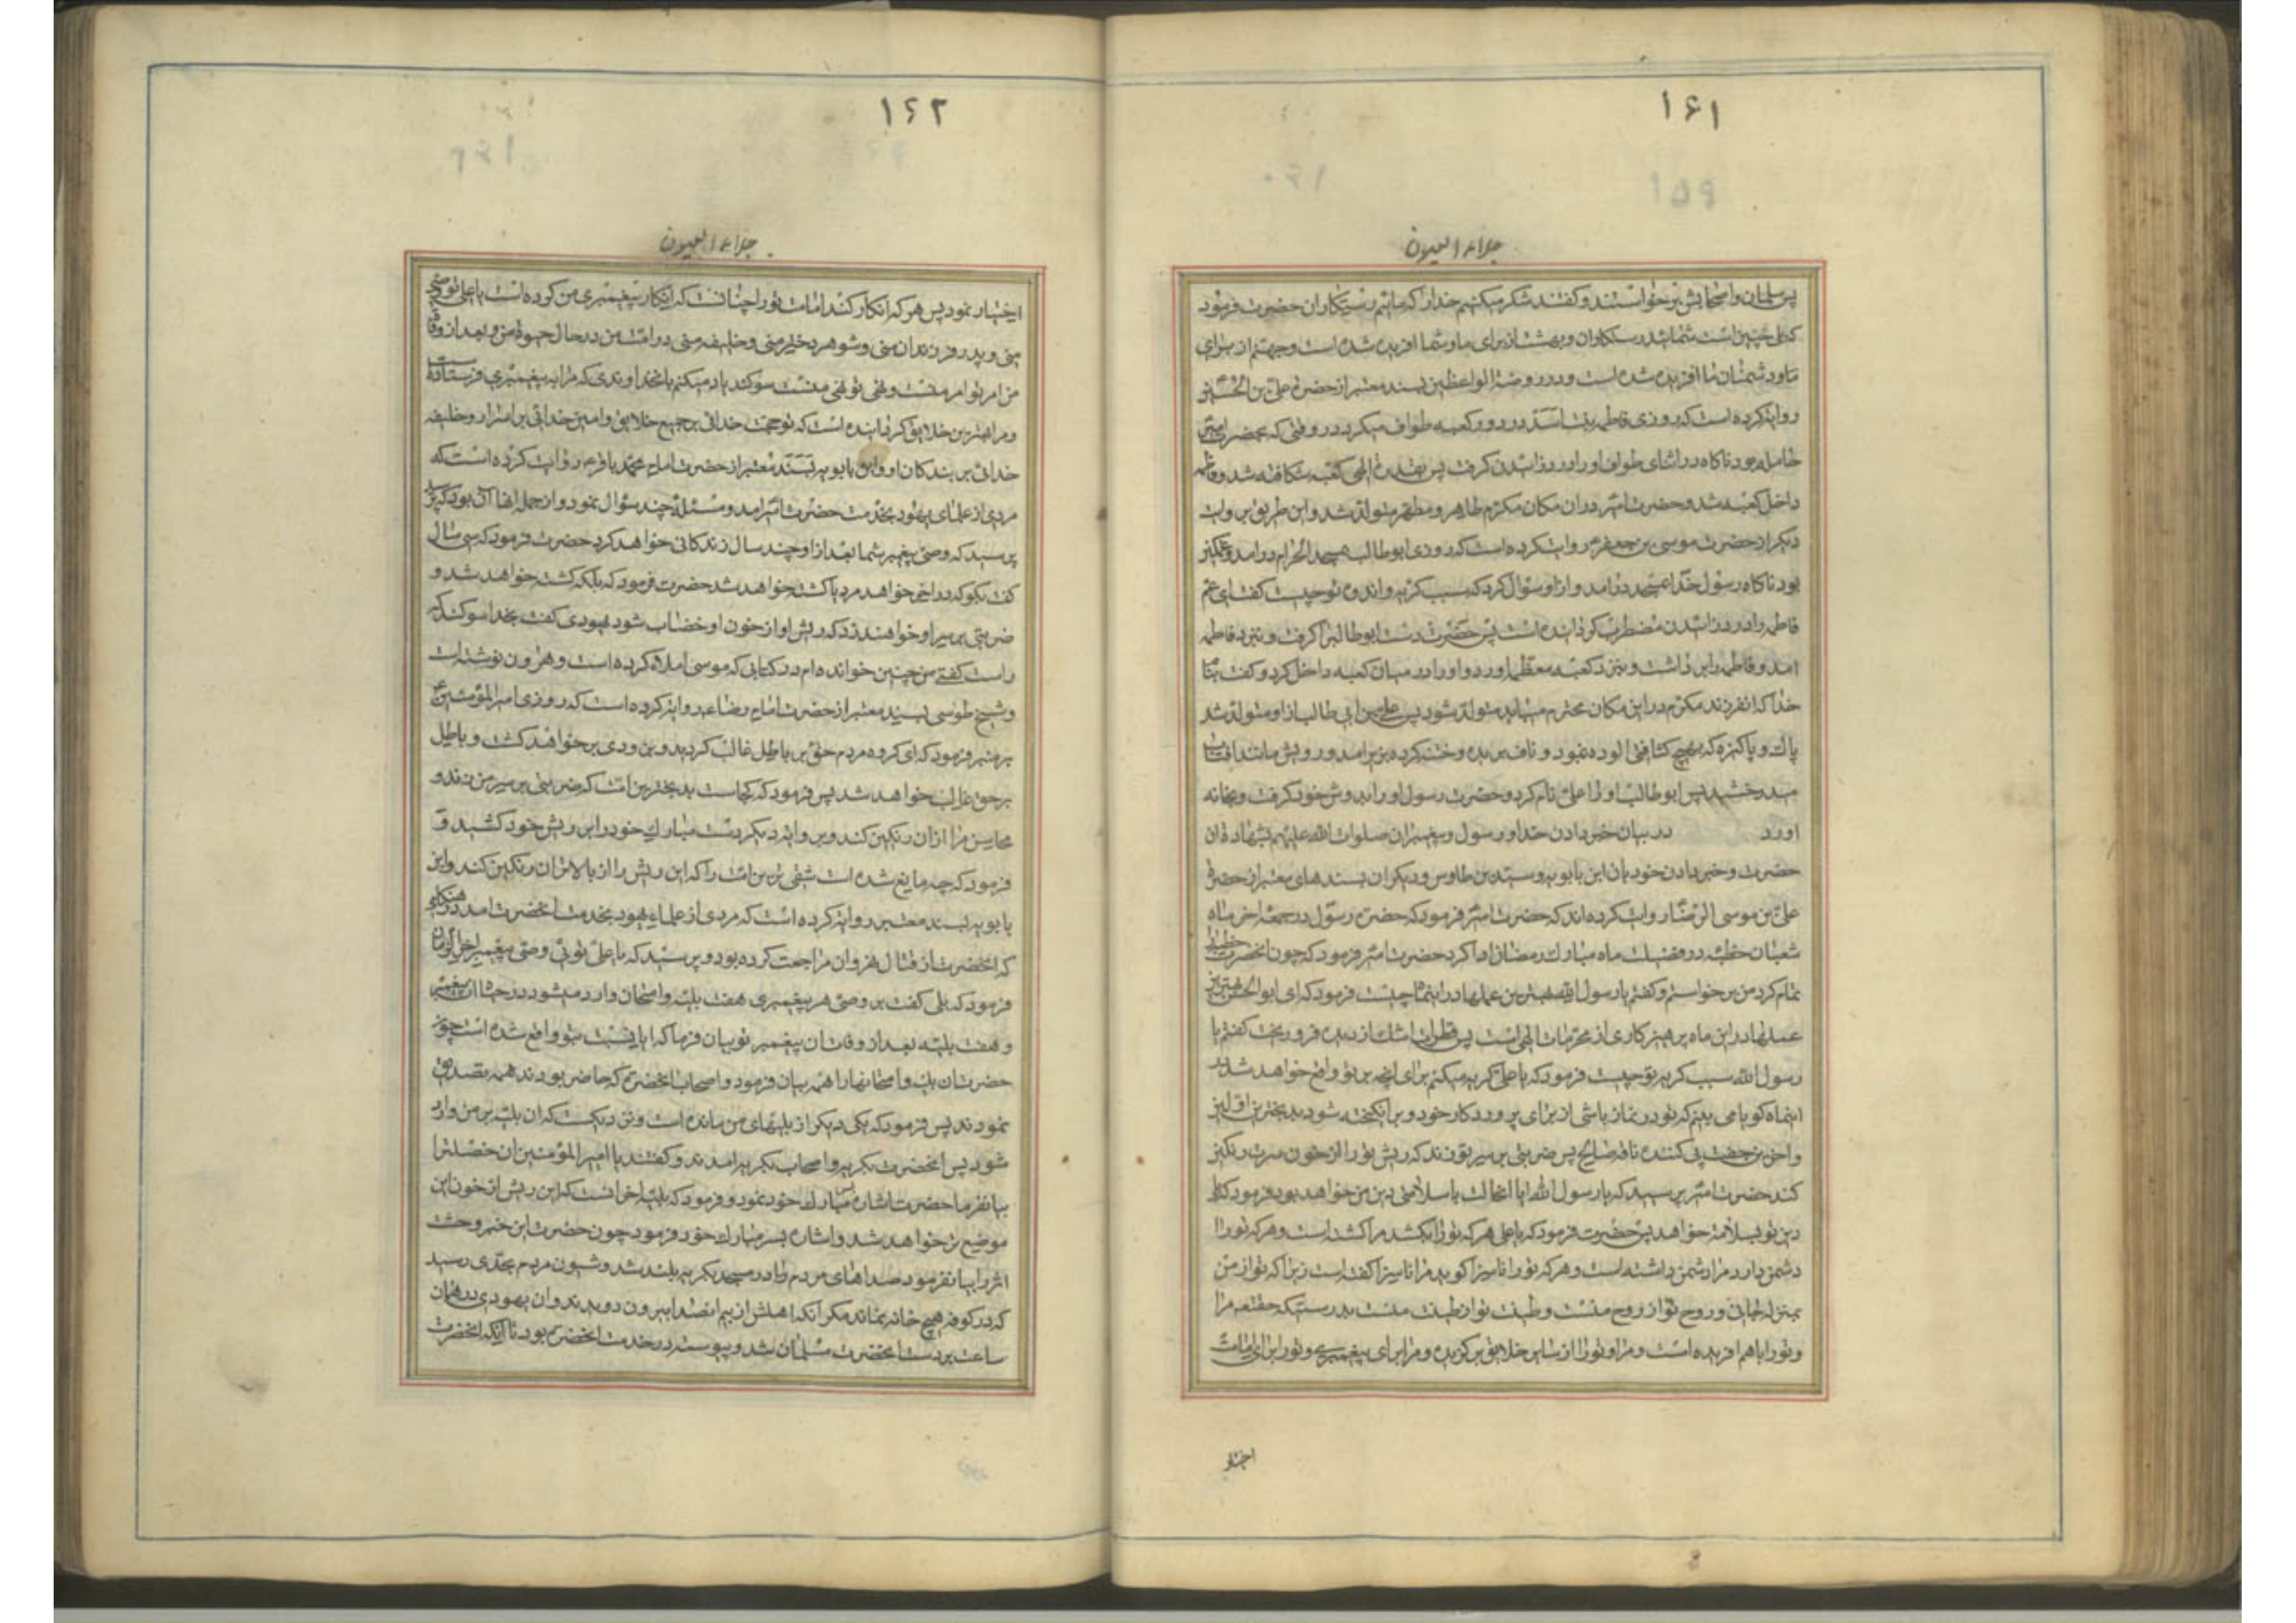 ۱۶۱
جلاء العیون
پس سلمان و اصحابش برخواستند و گفتند شکر میکنیم خدا را که مائیم رستکاران حضرت فرمود
که بلی چنین است شمائید رستکاران و بهشت از برای ما و شما افریده شده است و جهنم از برای
ما و دشمنان ما افریده شده است و در روضة الواعظین بسند معتبر از حضرت علی بن الحسین
روایت کرده است که روزی فاطمه بنت اسد در دور کعبه طواف میکرد در وقتی که بحضرت امیر
حامله بود ناکاه در اثنای طواف او را درد زائیدن گرفت پس بقدرت الهی کعبه شکافته شد و فاطمه
داخل کعبه شد و حضرت امیر در ان مکان مکرم طاهر و مطهر متولد شد و این طریق بروایت
دیکر از حضرت موسی بن جعفر روایت کرده است که روزی ابوطالب بمسجد الحرام درامد و غمکین
بود ناکاه رسول خدا بمسجد درامد و از او سؤال کرد که سبب کریه و اندوه تو چیست گفت ای عم
فاطمه را درد زائیدن مضطرب کردانیده است پس حضرت دست ابوطالب را گرفت و بنزد فاطمه
امد و فاطمه را برداشت و بنزد کعبه معظمه اورد و او را در میان کعبه داخل کرد و گفت بنام
خدا که انفرزند مکرم در این مکان محترم میباید متولد شود پس علی بن ابی طالب از او متولد شد
پاک و پاکیزه که بهیچ کثافتی الوده نبود و ناف بریده و ختنه کرده بزیر امد و رویش مانند افتاب
میدرخشید پس ابوطالب او را علی نام کرد و حضرت رسول او را بدوش خود گرفت و بخانه
اورد در بیان خبر دادن خدا و رسول و پیغمبران صلوات الله علیهم بشهادت ان
حضرت و خبر دادن خود بان ابن بابویه و سید بن طاوس و دیکران بسندهای معتبر از حضرت
علی بن موسی الرضا روایت کرده اند که حضرت امیر فرمود که حضرت رسول در جمعه اخر ماه
شعبان خطبه در فضیلت ماه مبارک رمضان ادا کرد حضرت امیر فرمود که چون انحضرت خطبه
تمام کرد من برخواستم و گفتم یا رسول الله بهترین عملها در اینماه چیست فرمود که ای ابوالحسن بهترین
عملها در این ماه پرهیزکاری از محرمات الهی است پس قطرات اشک از دیده فرو ریخت گفتم یا
رسول الله سبب کریه تو چیست فرمود که یا علی گریه میکنم برای انچه بر تو واقع خواهد شد در
اینماه کویا می بینم که تو در نماز باشی از برای پروردکار خود و برانکیخته شود بدبخترین اولین
و اخرین جفت پی کننده ناقه صالح پس ضربتی بر سر تو زند که ریش تو را از خون سرت رنکین
کند حضرت امیر پرسید که یا رسول الله ایا انحالت با سلامتی دین من خواهد بود فرمود که با
دین تو بسلامت خواهد پس حضرت فرمود که یا علی هر که تو را بکشد مرا کشته است و هر که تو را
دشمن دارد مرا دشمن داشته است و هر که تو را ناسزا کوید مرا ناسزا گفته است زیرا که تو از من
بمنزله جانی و روح تو از روح منست و طینت تو از طینت منست بدرستیکه حقتعه مرا
و تو را با هم افریده است و مرا و تو را از سایر خلایق برکزیده و مرا برای پیغمبری و تو را برای امامت
اختیار
۱۶۲
جلاء العیون
اختیار نمود پس هر که انکار کند امامت تو را چنانست که انکار پیغمبری من کرده است یا علی تو وصی
منی و پدر فرزندان منی و شوهر دختر منی و خلیفه منی در امت من در حال حیوة من و بعد از وفات
من امر تو امر منست و نهی تو نهی منست سوکند یاد میکنم بانخداوندی که مرا به پیغمبری فرستاده است
و مرا بهترین خلایق کردانیده است که تو حجت خدائی بر جمیع خلایق و امین خدائی بر اسرار و خلیفه
خدائی بر بندکان او و ابن بابویه بسند معتبر از حضرت امام محمد باقر روایت کرده است که
مردی از علمای یهود بخدمت حضرت امیر امد و مسئلهٔ چند سؤال نمود و از جمله انها ان بود که
پرسید که وصی پیغمبر شما بعد از او چند سال زندکانی خواهد کرد حضرت فرمود که سی سال
گفت بکو که در اخر خواهد مرد یا کشته خواهد شد حضرت فرمود که بلکه کشته خواهد شد و
ضربتی بر سر او خواهند زد که ریش او از خون او خضاب شود یهودی گفت بخدا سوکند که
راست کفتی من چنین خوانده ام در کتابی که موسی املا کرده است و هرون نوشته است
و شیخ طوسی بسند معتبر از حضرت امام رضا روایت کرده است که روزی امیرالمؤمنین
بر منبر فرمود که ای کروه مردم حق بر باطل غالب کردید و بزودی بر خواهد کشت و باطل
بر حق غالب خواهد شد پس فرمود که کجاست بدبخترین امت که ضربتی بر سر من زند و
محاسن مرا از ان رنکین کند و بروایت دیکر دست مبارک خود را بر ریش خود کشید و
فرمود که چه مانع شده است شقی ترین امت را که این ریش را از بالا تر ان رنکین کند و ابن
بابویه بسند معتبر روایت کرده است که مردی از علماء یهود بخدمت انحضرت امد در هنکامی
که انحضرت از قتال نهروان مراجعت کرده بود و پرسید که یا علی توئی وصی پیغمبر اخر الزمان
فرمود که بلی گفت بر وصی هر پیغمبری هفت بلیه و امتحان وارد میشود در حیات ان پیغمبر
و هفت بلیه بعد از وفات ان پیغمبر تو بیان فرما که ایا نسبت بتو واقع شده است چون
حضرت ان بلیه و امتحانها را همه بیان فرمود و اصحاب انحضرت که حاضر بودند همه تصدیق
نمودند پس فرمود که یکی دیکر از بلیهای من مانده است و نزدیکست که ان بلیه بر من وارد
شود پس انحضرت بکریه و اصحاب بکریه امدند و گفتند یا امیرالمؤمنین ان خصلت را
بیان فرما حضرت اشاره بریش مبارک خود نمود و فرمود که بلیه اخر انست که این ریش از خون این
موضع تر خواهد شد و اشاره بسر مبارک خود فرمود چون حضرت این خبر وحشت
اثر را بیان فرمود صداهای مردم را در مسجد بکریه بلند شد و شیون مردم بحدی رسید
که در کوفه هیچ خانه نماند مکر انکه اهلش از بیم انصدا بیرون دویدند و ان یهودی در همان
ساعت بر دست انحضرت مسلمان شد و پیوسته در خدمت انحضرت بود تا انکه انحضرت